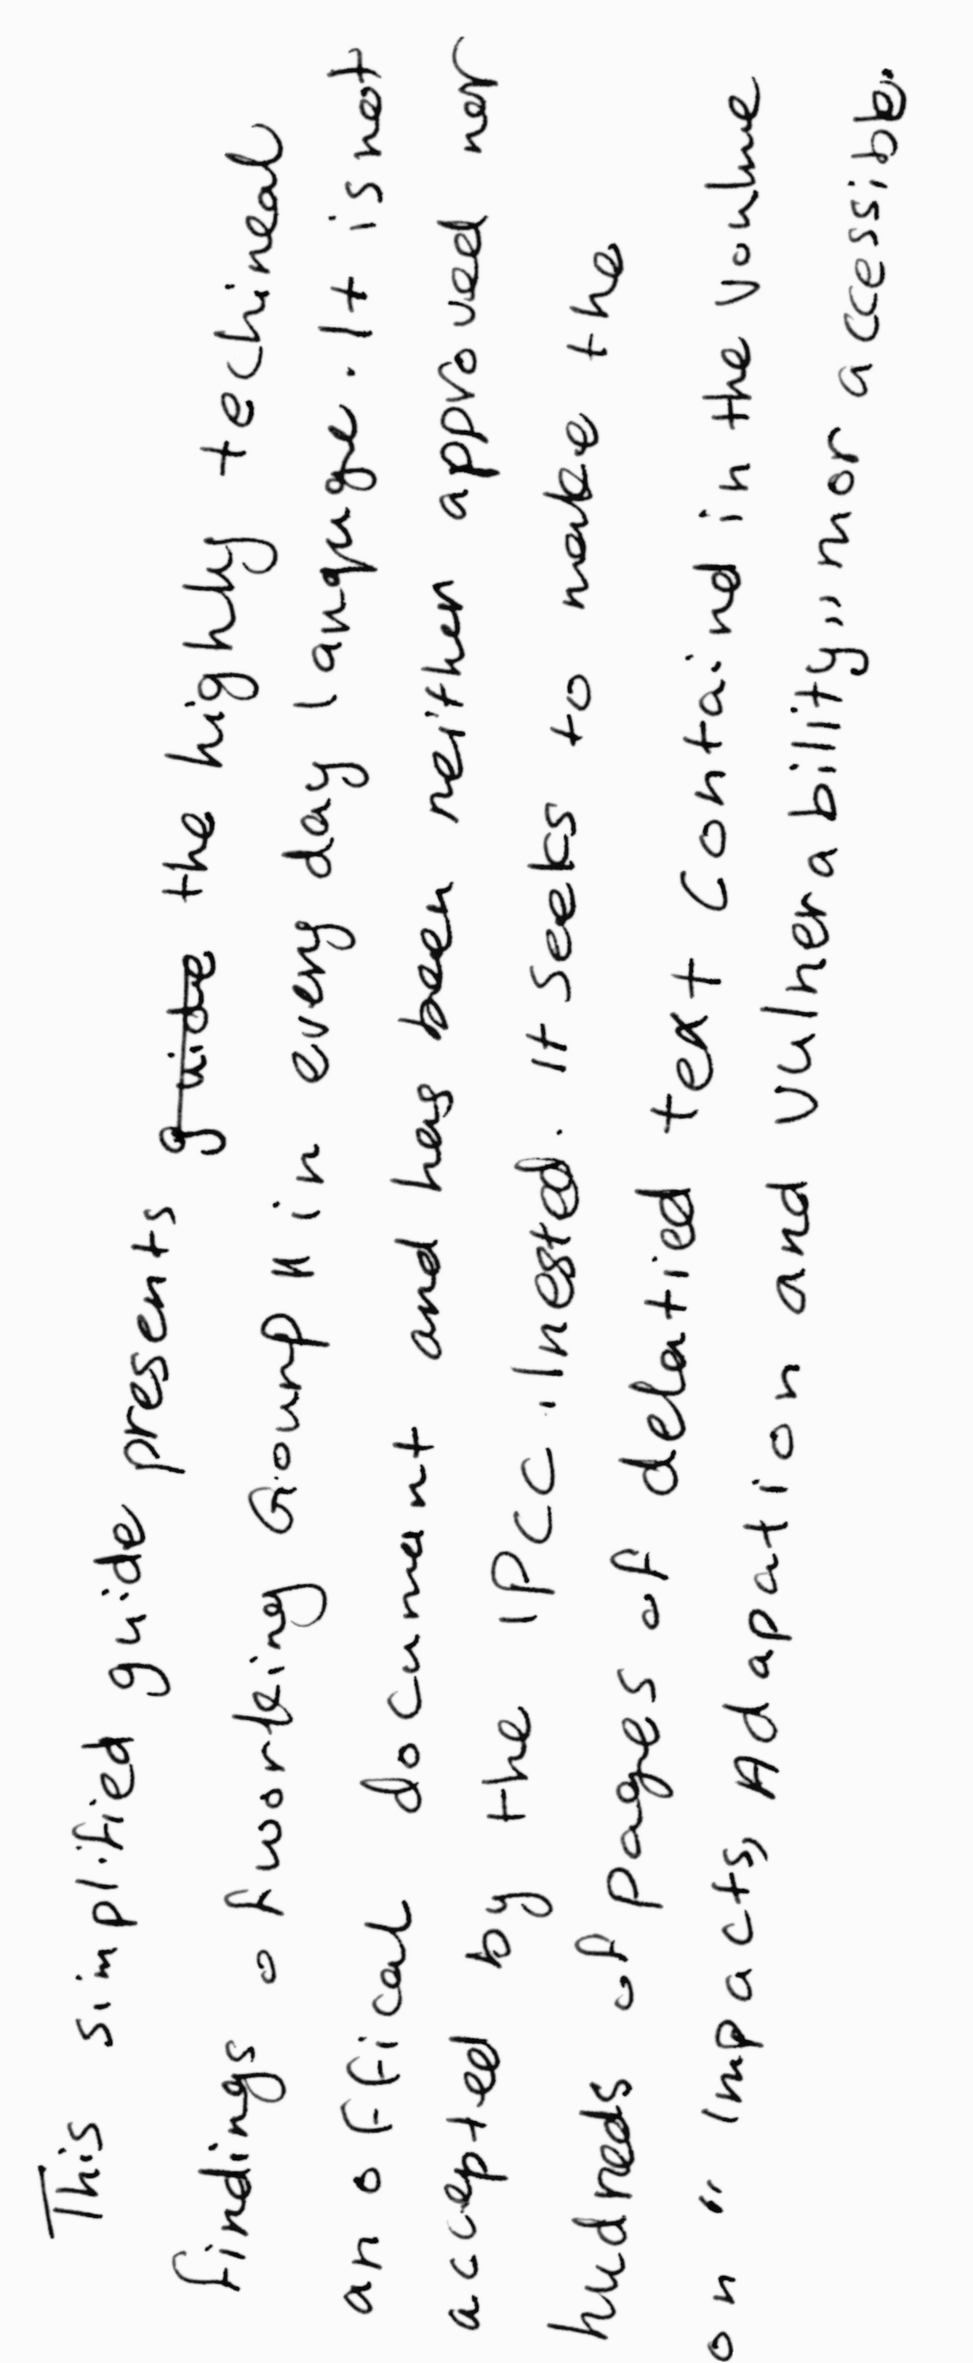 This simplified guide presents guide the highly techineal
findings of working Giounp II in every day languge. It is not
an offical documant and has been neither approved nor
accepted by the IPCC. Inested. It seeks to make the
hudreds of Pages of delatied text Containd in the Vonlme
on " Impacts, Adapation and Vulnerability,, mor accessible.